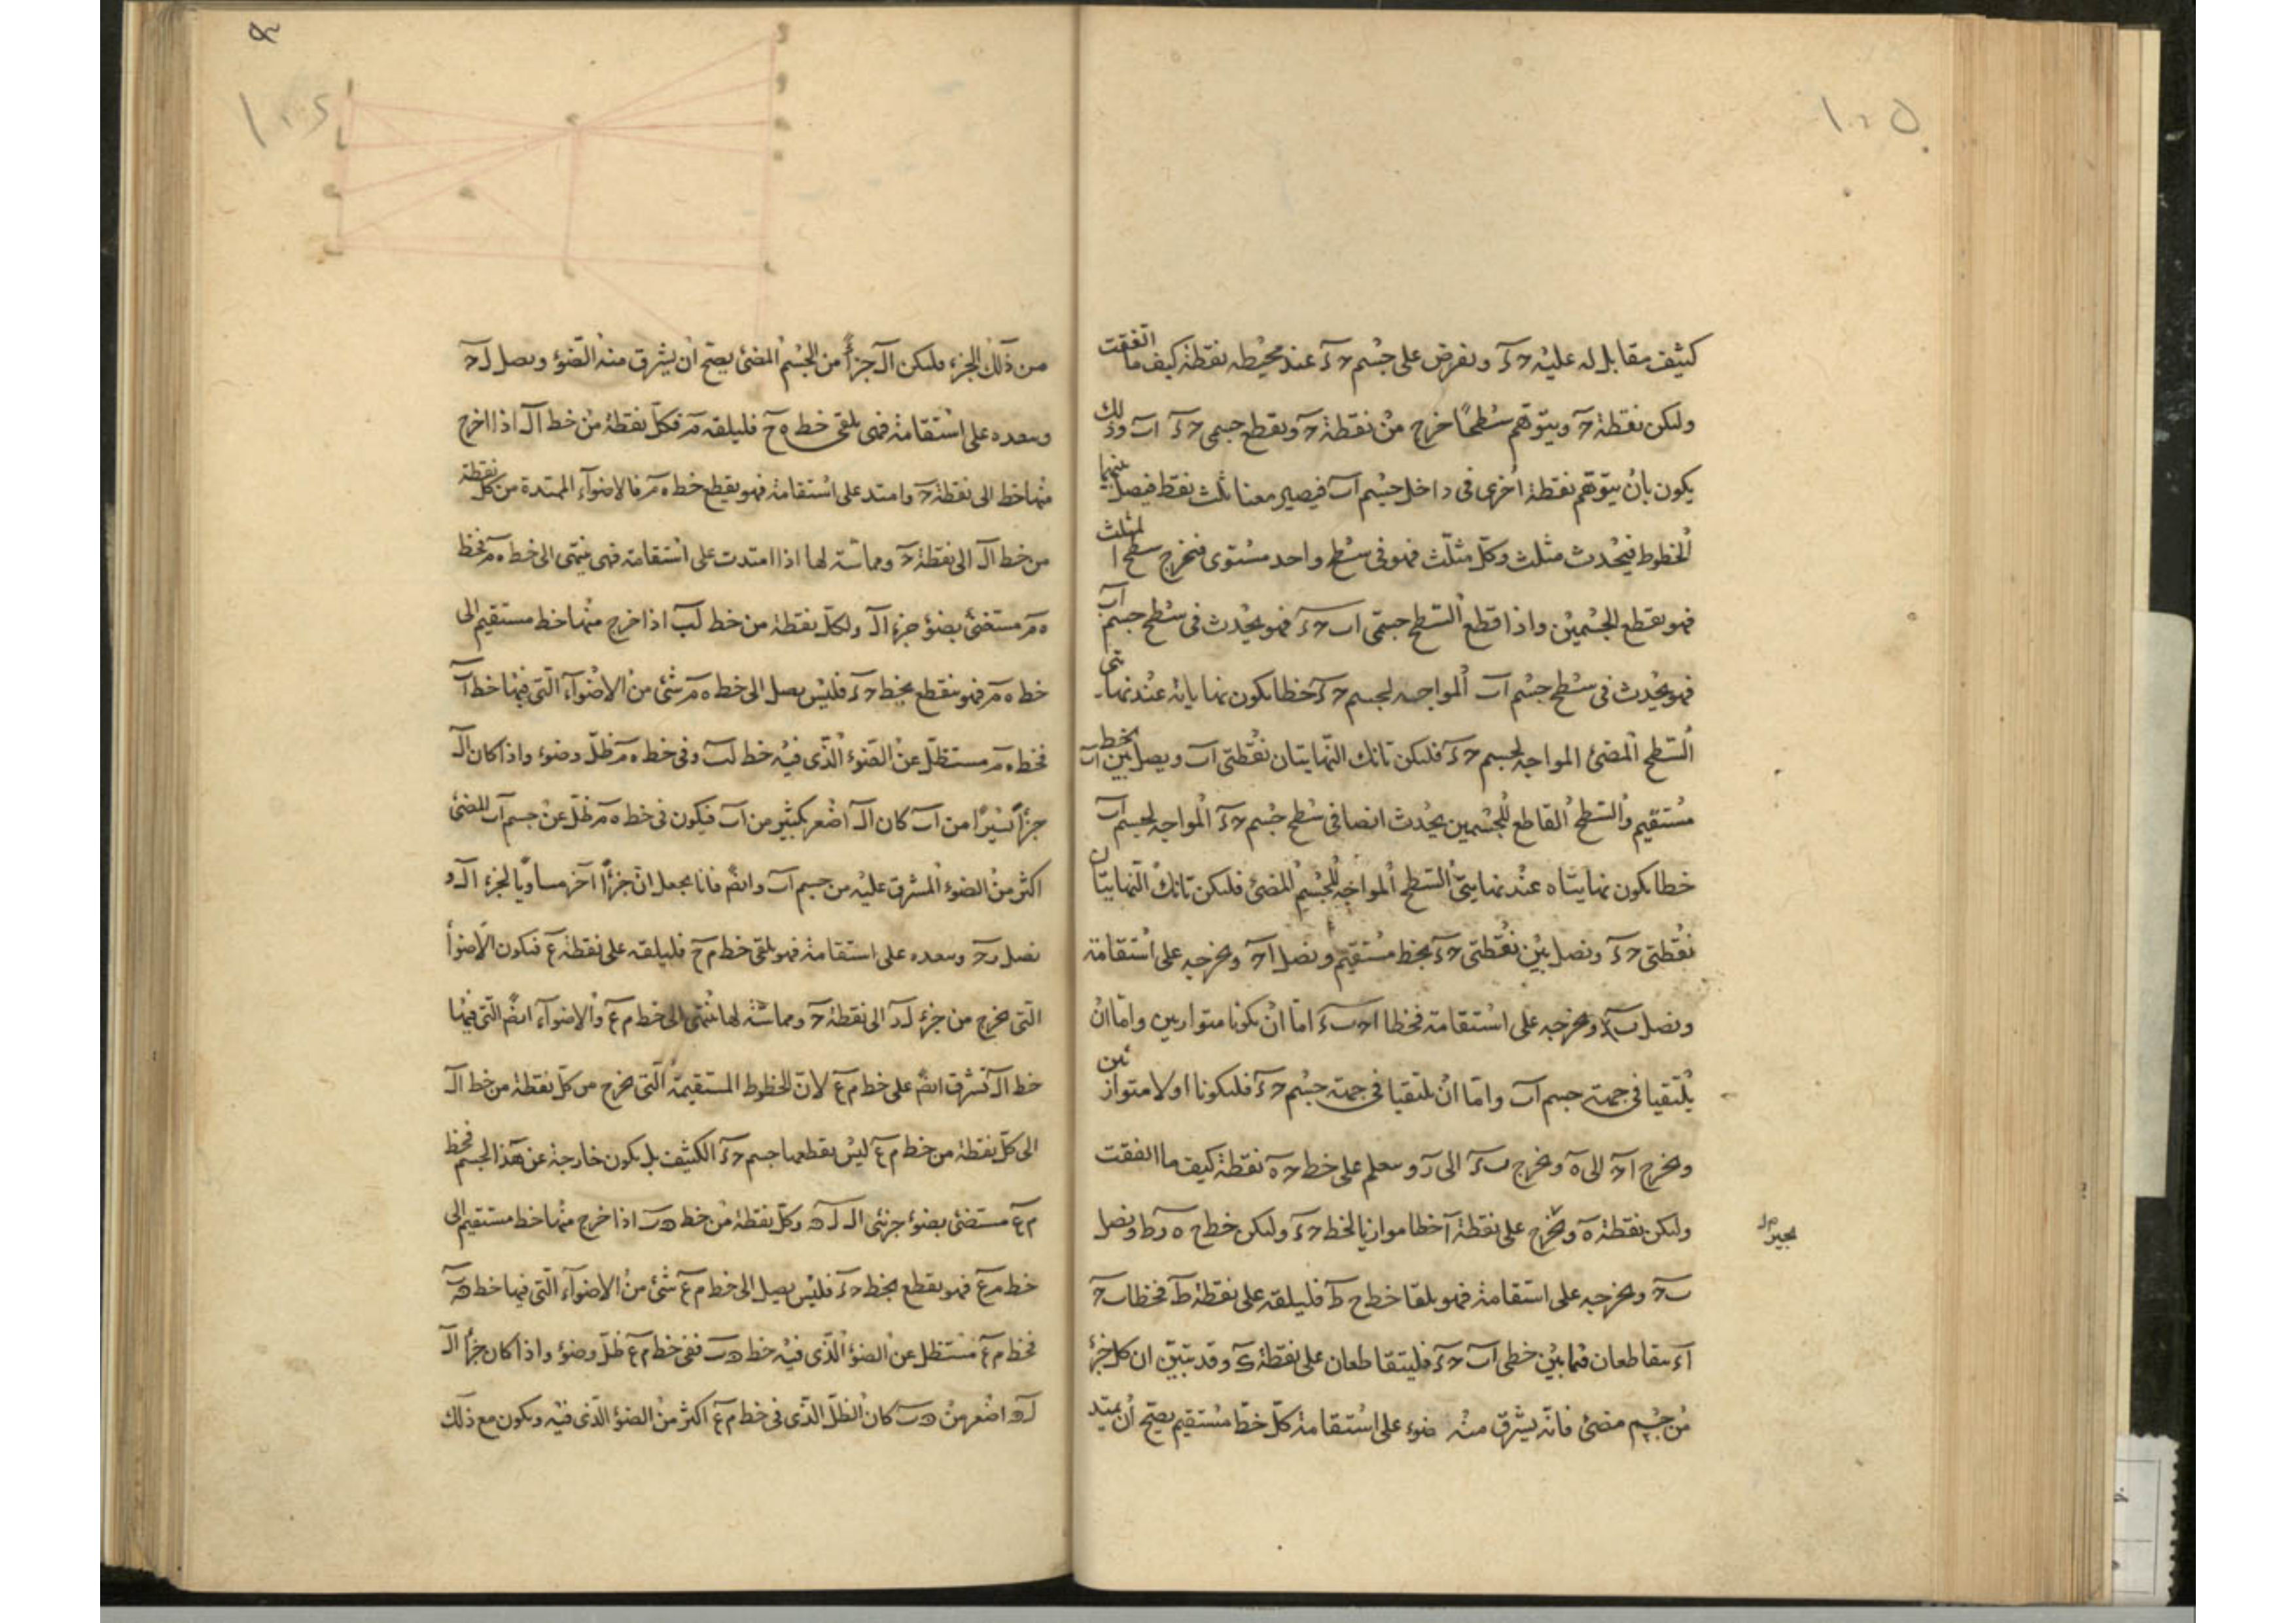 ١٠٥
كثيف مقابل له عليه حـ د ونفرض على جسم حـ د عند محيطه نقطة كيف ما اتفقت
ولتكن نقطة حـ ويتوهم سطحًا خرج من نقطة حـ ويقطع جسمى حـ د اب وذلك
يكون بان يتوهم نقطة اخرى فى داخل جسم اب فيصير معنا ثلث نقط فيصل بينهما
الخطوط فيحدث مثلث وكل مثلث فهو فى سطح واحد مستوى فنخرج سطح المثلث
فهو يقطع الجسمين واذا قطع السطح جسمى اب حـ د فهو يحدث فى سطح جسم اب
فهو يحدث فى سطح جسم اب المواجه لجسم حـ د خطا يكون نهايايه عند نهايتى
السطح المضئ المواجه لجسم حـ د فلتكن تانك النهايتان نقطتى اب ويصل بين اب بخط
مستقيم والسطح القاطع للجسمين يحدث ايضا فى سطح جسم حـ د المواجه لجسم اب
خطا يكون نهايتاه عند نهايتى السطح المواجه للجسم المضئ فلتكن تانك النهايتان
نقطتى حـ د ونصل بين نقطتى حـ د بخط مستقيم ونصل احـ ونخرجه على استقامة
ونصل ب د ونخرجه على استقامة فخطا احـ ب د اما ان يكونا متوازيين واما ان
يلتقيا فى جهة جسم اب واما ان يلتقيا فى جهة جسم حـ د فليكونا اولا متوازيين
ونخرج احـ الى ه ونخرج ب د الى ر ونعلم على خط حـ ه نقطة كيف ما اتفقت
ولتكن نقطة ه ونخرج على نقطة ه خطا موازيا لخط حـ د وليكن خط ح ه ر ط ونصل
ب حـ ونخرجه على استقامة فهو يلقا خط ح ط فليلقه على نقطة ط فخطا ب حـ
ا د يتقاطعان فيما بين خطى اب حـ د فليتقاطعان على نقطة ك وقد تبين ان كل جزء
من جسم مضئ فانه يشرق منه ضوء على استقامة كل خط مستقيم يصح أن يمتد
من ذلك الجزء فليكن ال جزأً من الجسم المضئ يصح ان يشرق منه الضوء ويصل ل حـ
وينفده على استقامة فهى يلقى خط ه ح فليلقه م فكل نقطة من خط ال اذا اخرج
منها خط الى نقطة حـ وامتد على استقامة فهو يقطع خط ه م فالاضواء الممتدة من كل نقطة
من خط ال الى نقطة حـ ومماسة لها اذا امتدت على استقامة فهى ينتهى الى خط ه م فخط
ه م مستضئ بضوء جزء ال ولكل نقطة من خط لب اذا خرج منها خط مستقيم الى
خط ه م فهو ينقطع بخط حـ د فليس يصل الى خط ه م شئ من الاضواء التى فيها خط اب
فخط ه م مستظل عن الضوء الذى فيه خط لب وفى خط ه م ظل وضوء واذا كان ال
جزأً يسيرًا من اب كان ال اصغر بكثير من اب فيكون فى خط ه م ظل عن جسم اب المضئ
اكثر من الضوء المشرق عليه من جسم اب وايضً فانا نجعل ان جزءًا آخر مساويًا لجزء ال و
نصل ن حـ وينفده على استقامة فهو يلقى خط م ح فليلقه على نقطة ع فيكون الاضوأ
التى يخرج من جزء ل ن الى نقطة حـ ومماسة لها ينتهى الى خط م ع والاضواء ايضً التى فيها
خط ال تشرق ايضً على خط م ع لان الخطوط المستقيمة التى يخرج من كل نقطة من خط ال
الى كل نقطة من خط م ع ليس يقطعها جسم حـ د الكثيف بل يكون خارجة عن هذا الجسم فخط
م ع مستضئ بضوء جزئى ال ل ن وكل نقطة من خط ن ب اذا خرج منها خط مستقيم الى
خط م ع فهو يقطع بخط حـ د فليس يصل الى خط م ع شئ من الاضواء التى فيها خط ن ب
فخط م ع مستظل عن الضوء الذى فيه خط ن ب ففى خط م ع ظل وضوء واذا كان جزأ ال
ل ن اصغر من ن ب كان الظل الذى فى خط م ع اكثر من الضوء الذى فيه ويكون مع ذلك